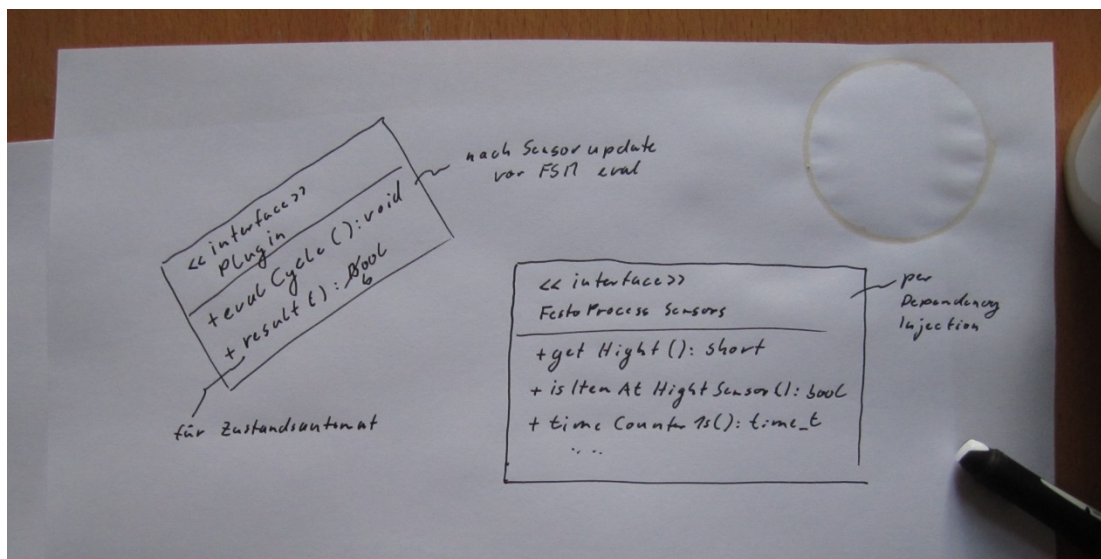 <<interface>>
plugin
+ evalCycle(): void
+ result(): bool
nach Sensorupdate
vor FSM eval
für Zustandsautomat
<< interface>>
FestoProcessSensors
+ getHight(): short
+ isItemAtHightSensor(): bool
+ timeCounter1s(): time_t
....
per
Dependency
Injection